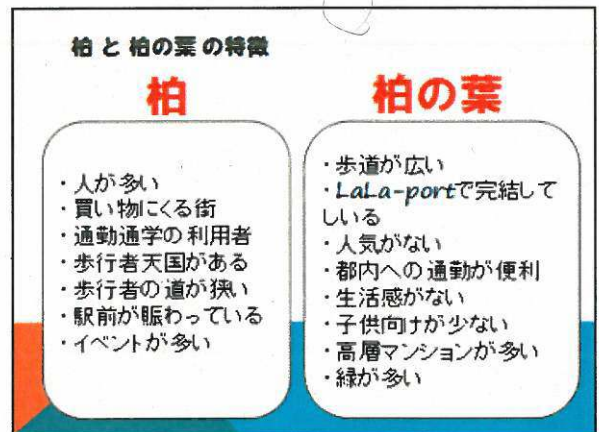 柏と柏の葉の特徴
柏
・人が多い
・買い物にくる街
・通勤通学の利用者
・歩行者天国がある
・歩行者の道が狭い
・駅前が賑わっている
・イベントが多い
柏の葉
・歩道が広い
・LaLa-portで完結して
しいる
・人気がない
・都内への通勤が便利
・生活感がない
・子供向けが少ない
・高層マンションが多い
・緑が多い